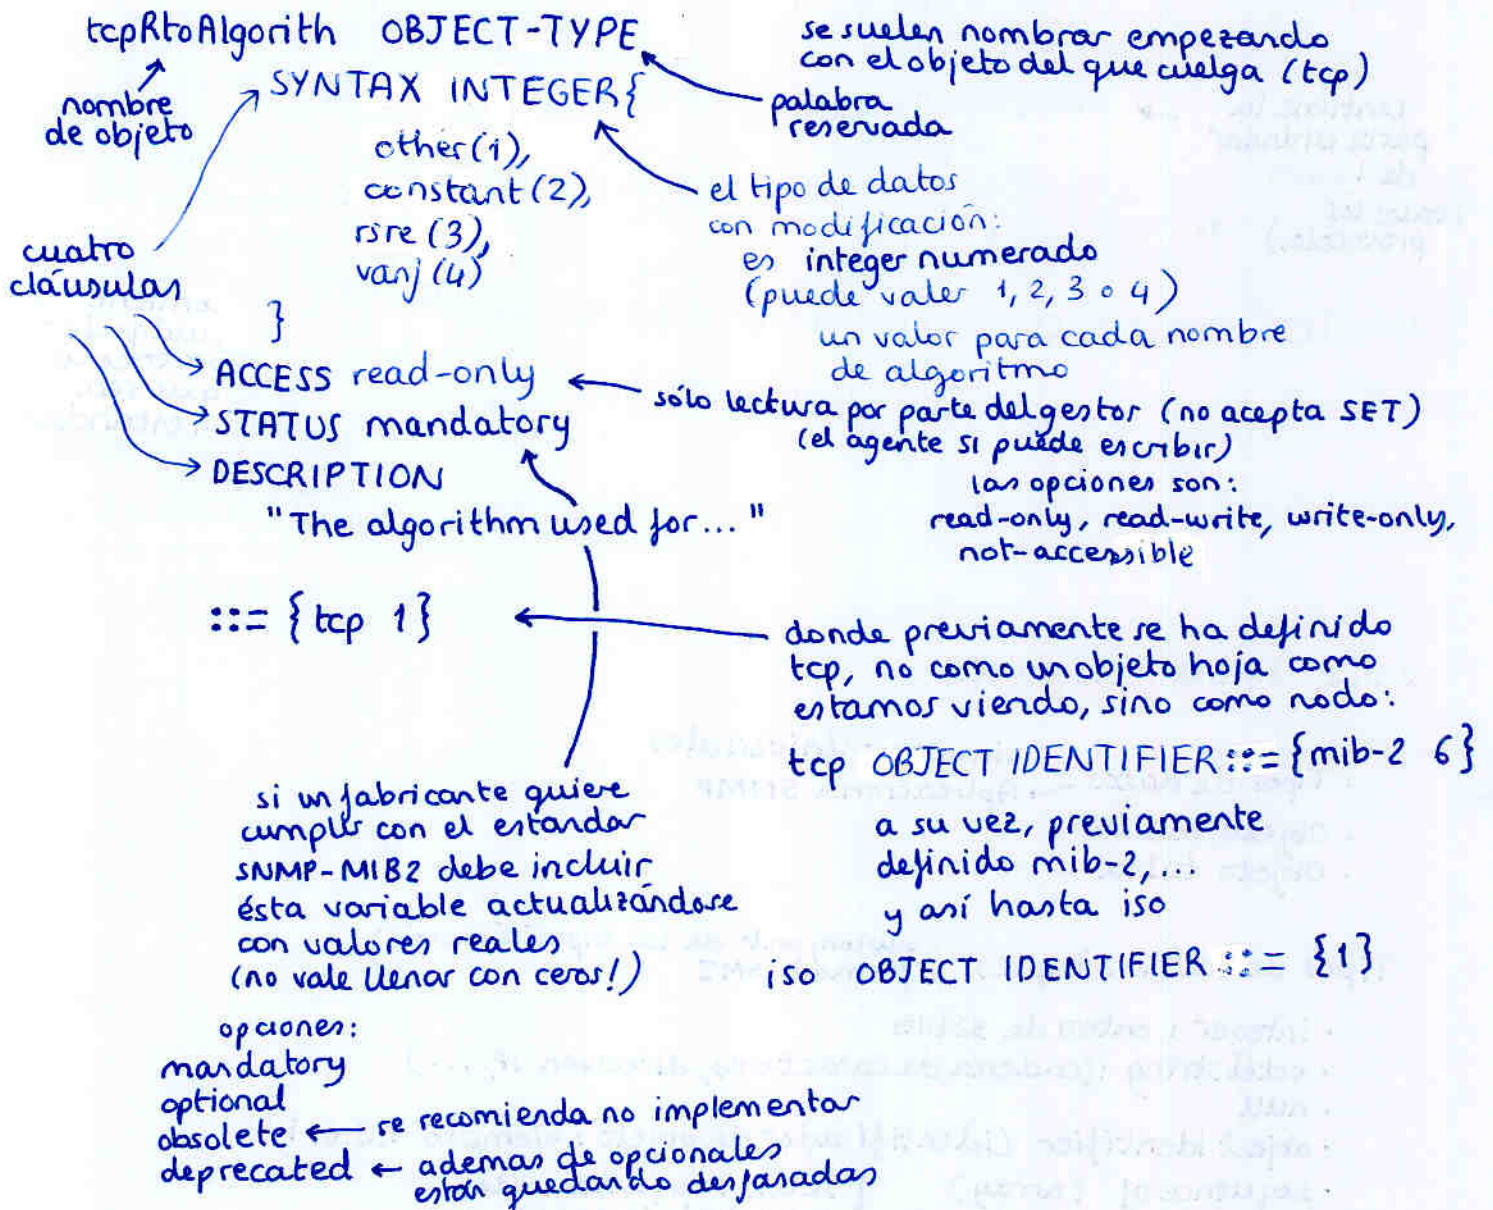 tcpRtoAlgorith OBJECT-TYPE
nombre
de objeto
SYNTAX INTEGER{
other(1),
constant(2),
rsre(3),
vanj(4)
}
cuatro
cláusulas
ACCESS read-only
STATUS mandatory
DESCRIPTION
"The algorithm used for..."
::= {tcp 1}
se suelen nombrar empezando
con el objeto del que cuelga (tcp)
palabra
reservada
el tipo de datos
con modificación:
es integer numerado
(puede valer 1, 2, 3 o 4)
un valor para cada nombre
de algoritmo
sólo lectura por parte del gestor (no acepta SET)
(el agente si puede escribir)
las opciones son:
read-only, read-write, write-only,
not-accessible
donde previamente se ha definido
tcp, no como un objeto hoja como
estamos viendo, sino como nodo:
tcp OBJECT IDENTIFIER ::= {mib-2 6}
a su vez, previamente
definido mib-2,...
y así hasta iso
iso OBJECT IDENTIFIER ::= {1}
si un fabricante quiere
cumplir con el estandar
SNMP-MIB2 debe incluir
ésta variable actualizándose
con valores reales
(no vale llenar con ceros!)
opciones:
mandatory
optional
obsolete ← se recomienda no implementar
deprecated ← ademas de opcionales
están quedando desfasadas